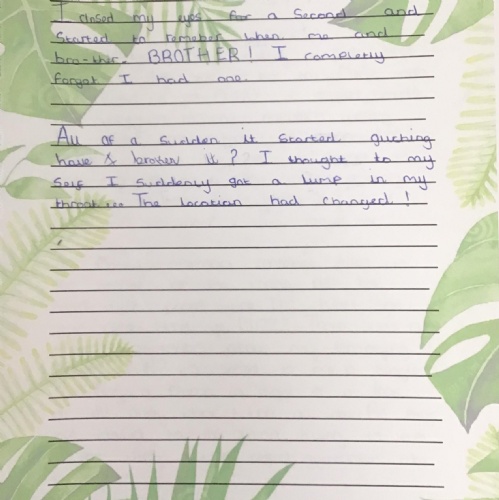 I closed my eyes for a second and
started to remeber when me and
bro-ther. BROTHER! I completly
forgot I had one.
All of a sudden it started gliching
have I broken it? I thought to my
self I suddenly got a lump in my
throat... The location had changed!